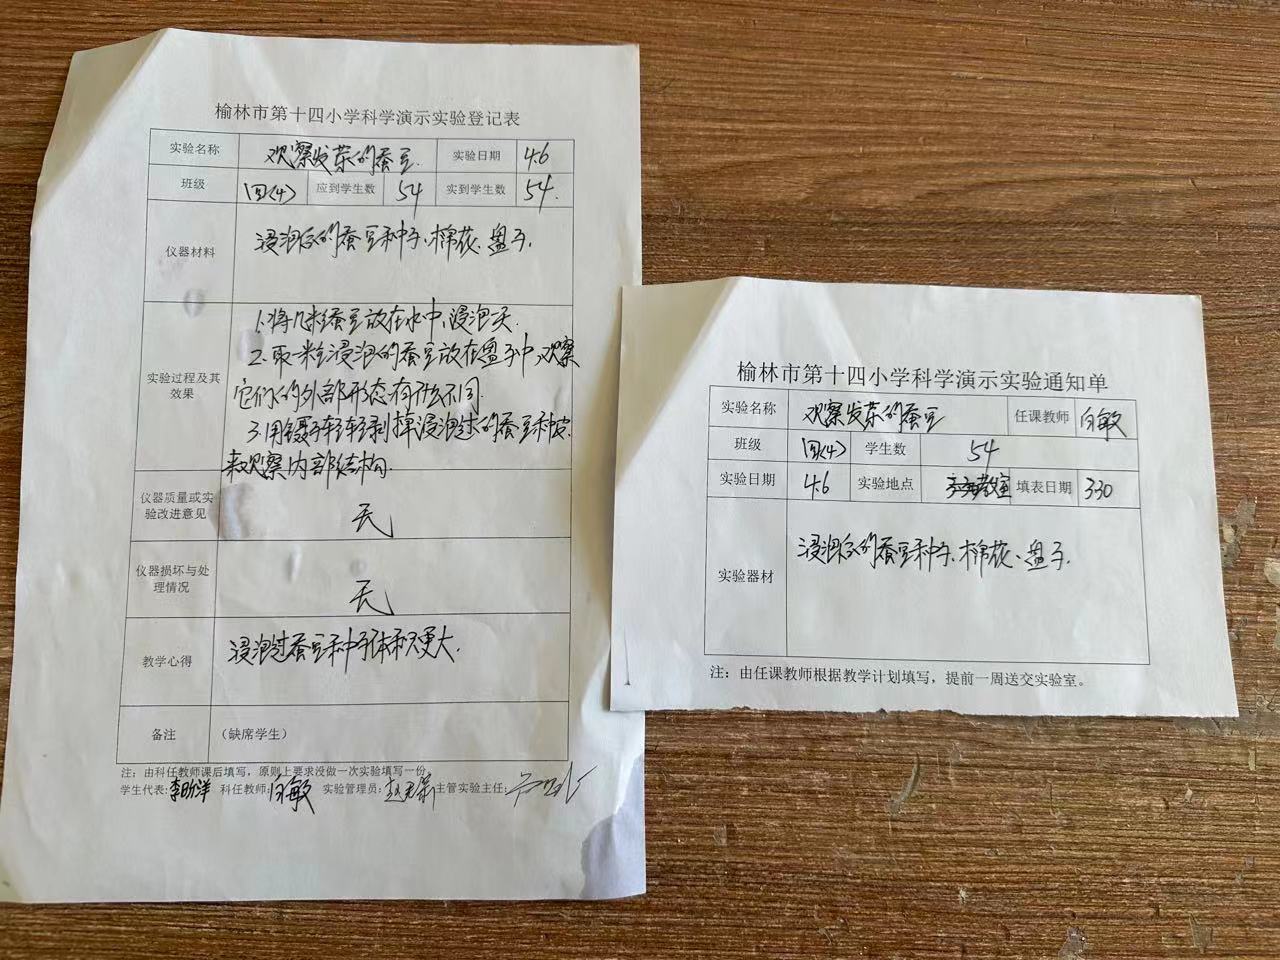 榆林市第十四小学科学演示实验登记表
实验名称 观察发芽的蚕豆. 实验日期 4.6
班级 四(4) 应到学生数 54 实到学生数 54.
仪器材料 浸泡后的蚕豆种子、棉花、盘子.
实验过程及其效果
1.将几粒蚕豆放在水中,浸泡一天.
2.取一粒浸泡的蚕豆放在盘子中,观察
它们的外部形态有什么不同.
3.用镊子轻轻剥掉浸泡过的蚕豆种皮
来观察内部结构.
仪器质量或实验改进意见 无
仪器损坏与处理情况 无
教学心得 浸泡过蚕豆种子体积更大.
备注 (缺席学生)
注:由科任教师课后填写,原则上要求没做一次实验填写一份
学生代表: 科任教师:白敏 实验管理员: 主管实验主任:
榆林市第十四小学科学演示实验通知单
实验名称 观察发芽的蚕豆 任课教师 白敏
班级 四(4) 学生数 54
实验日期 4.6 实验地点 教室 填表日期 3.30
实验器材 浸泡后的蚕豆种子、棉花、盘子.
注:由任课教师根据教学计划填写,提前一周送交实验室。